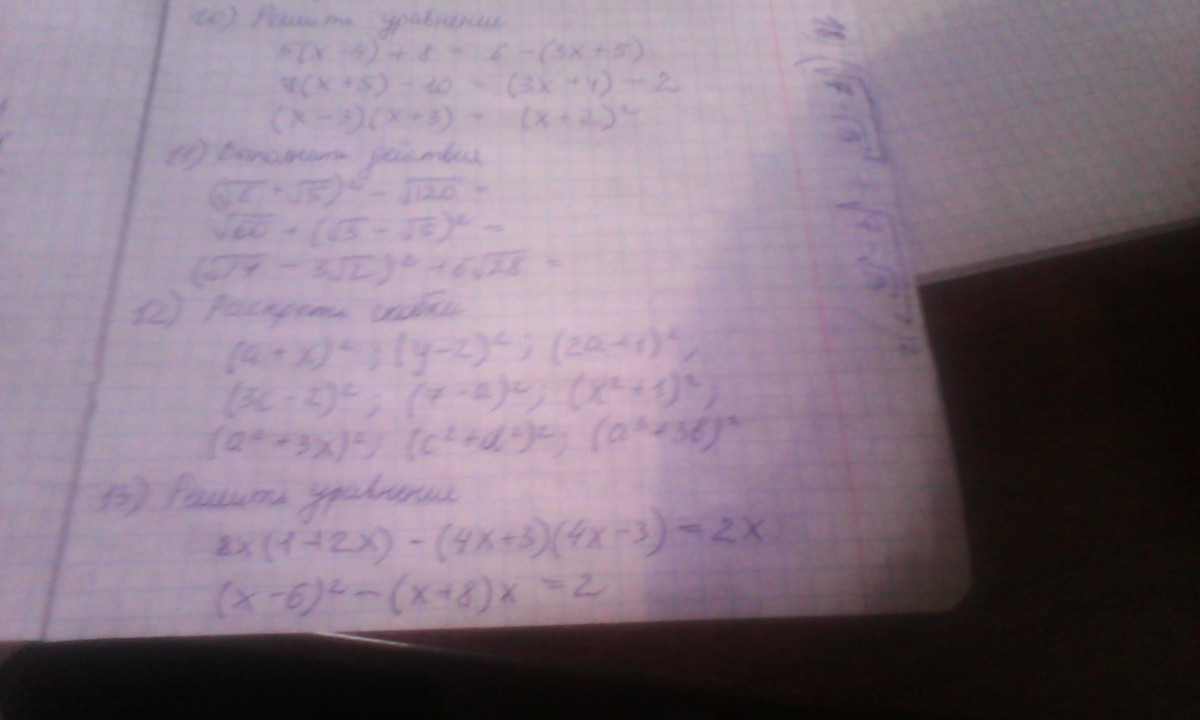 10) Решить уравнение
5(x-4)+8 = 6-(3x+5)
7(x+5)-10 = (3x+4)-2
(x-3)(x+3) = (x+2)²
11) Выполнить действия
(√6+√5)² - √120 =
√60 + (√3-√5)² =
- 3√2)² + 6√28 =
12) Раскрыть скобки
(a+x)²; (y-2)²; (2a+1)²;
(3c-2)²; (7-a)²; (x²+1)²;
(a²+3x)²; (c²+d²)²;
13) Решить уравнение
x(1+2x) - (4x+3)(4x-3) = 2x
(x-6)² - (x+8)x = 2